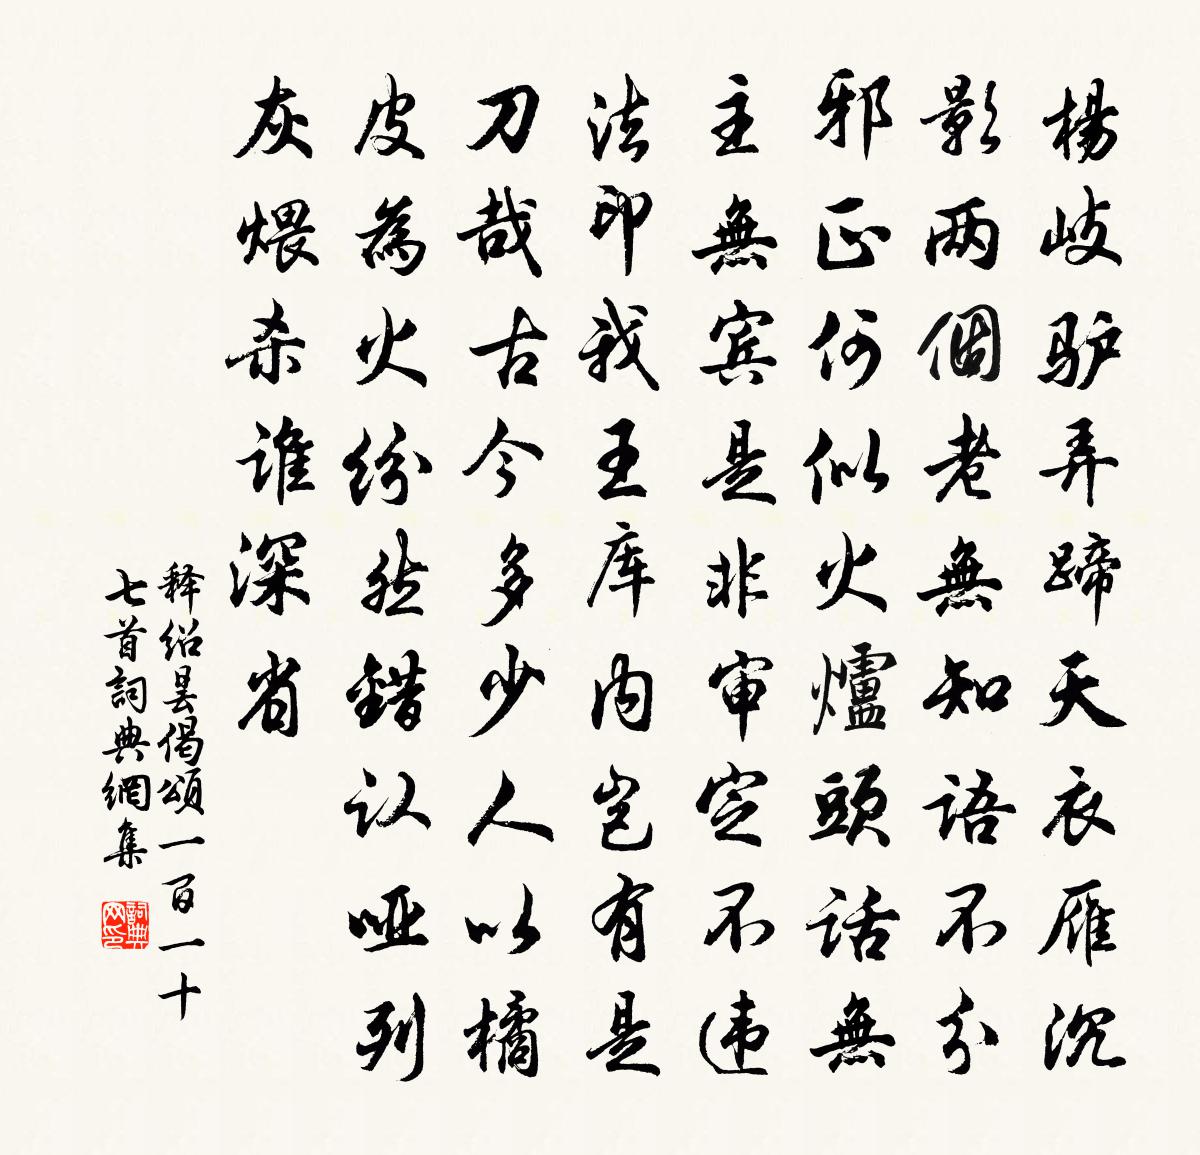 楊岐驴弄蹄天衣雁沉
影两個老無知語不分
邪正何似火爐頭話無
主無宾是非审定不违
法印我王库内岂有是
刀哉古今多少人以橘
皮為火纷然錯认哑列
灰煨杀谁深省
释绍昙偈頌一百一十
七首詞典網集
詞典网印